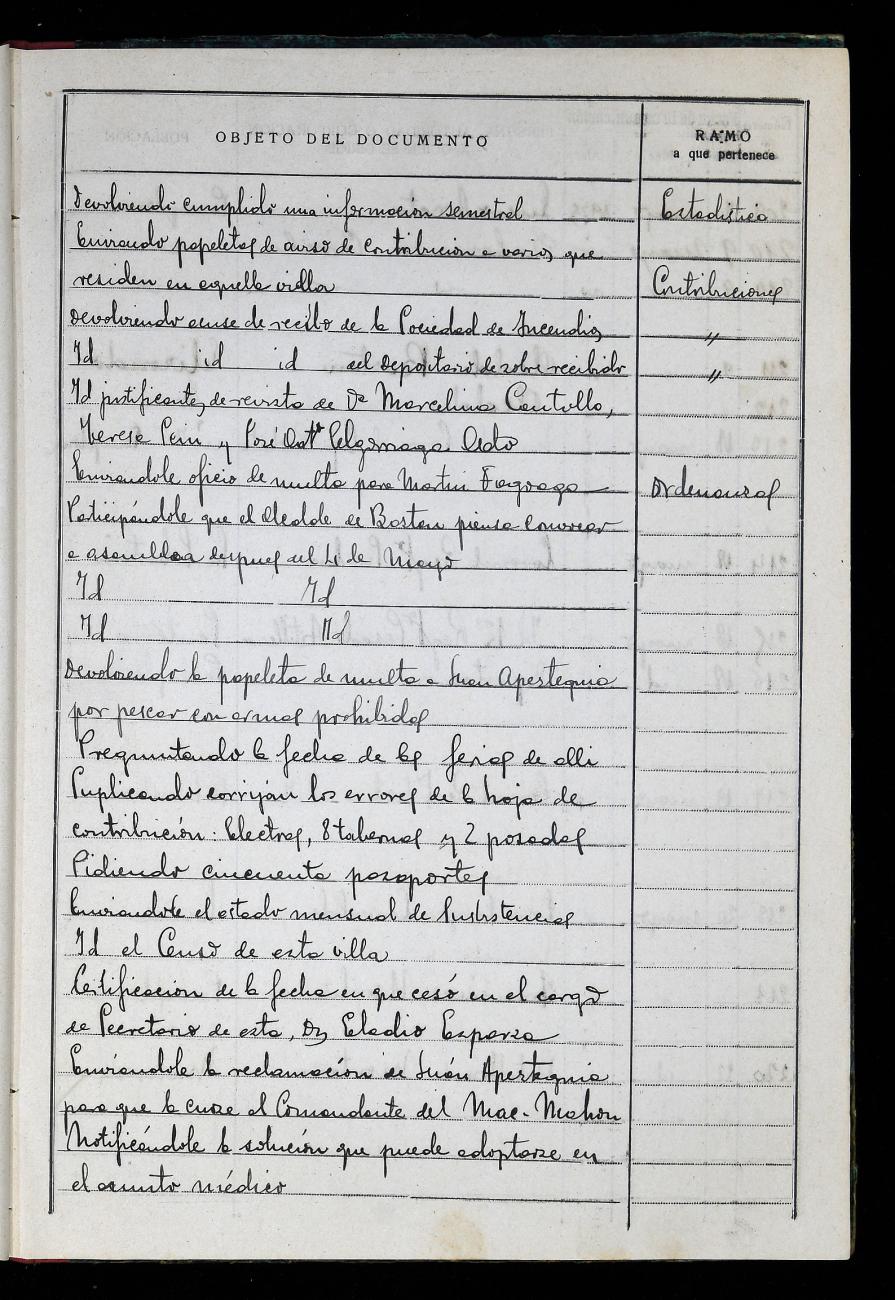 OBJETO DEL DOCUMENTO
RAMO
a que pertenece
Devolviendo cumplido una información semestral
Estadistica
Enviando papeletas de aviso de contribución a varios que
residen en aquella villa
Contribuciones
Devolviendo acuse de recibo de la Sociedad de Incendios
"
Id id id del Depositario de sobre recibido
"
Id justificantes de revista de Dª Marcelina Cantullo,
Teresa y José Antº
Enviandole oficio de multa para Martin
Ordenanzas
Participándole que el Alcalde de Bastan piensa convocar
a asamblea despues del 4 de Mayo
Id Id
Id Id
Devolviendo la papeleta de multa a Juan Apesteguia
por pescar con armas prohibidas
Preguntando la fecha de las ferias de alli
Suplicando corrijan los errores de la hoja de
contribución: Electras, 8 tabernas y 2 posadas
Pidiendo cincuenta pasaportes
Enviandole el estado mensual de Subsistencias
Id el Censo de esta villa
Certificacion de la fecha en que cesó en el cargo
de Secretario de esta, Dn Eladio Esparza
Enviándole la reclamación de Juán Apesteguia
para que la curse al Comandante del Mac-Mahon
Notificándole la solución que puede adoptarse en
el asunto médico